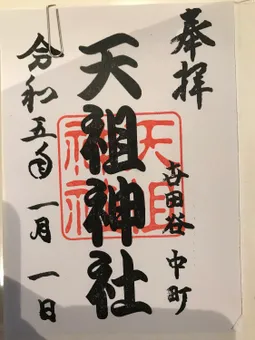 奉拝
世田谷 中町
天祖神社
天祖神社
令和五年一月一日